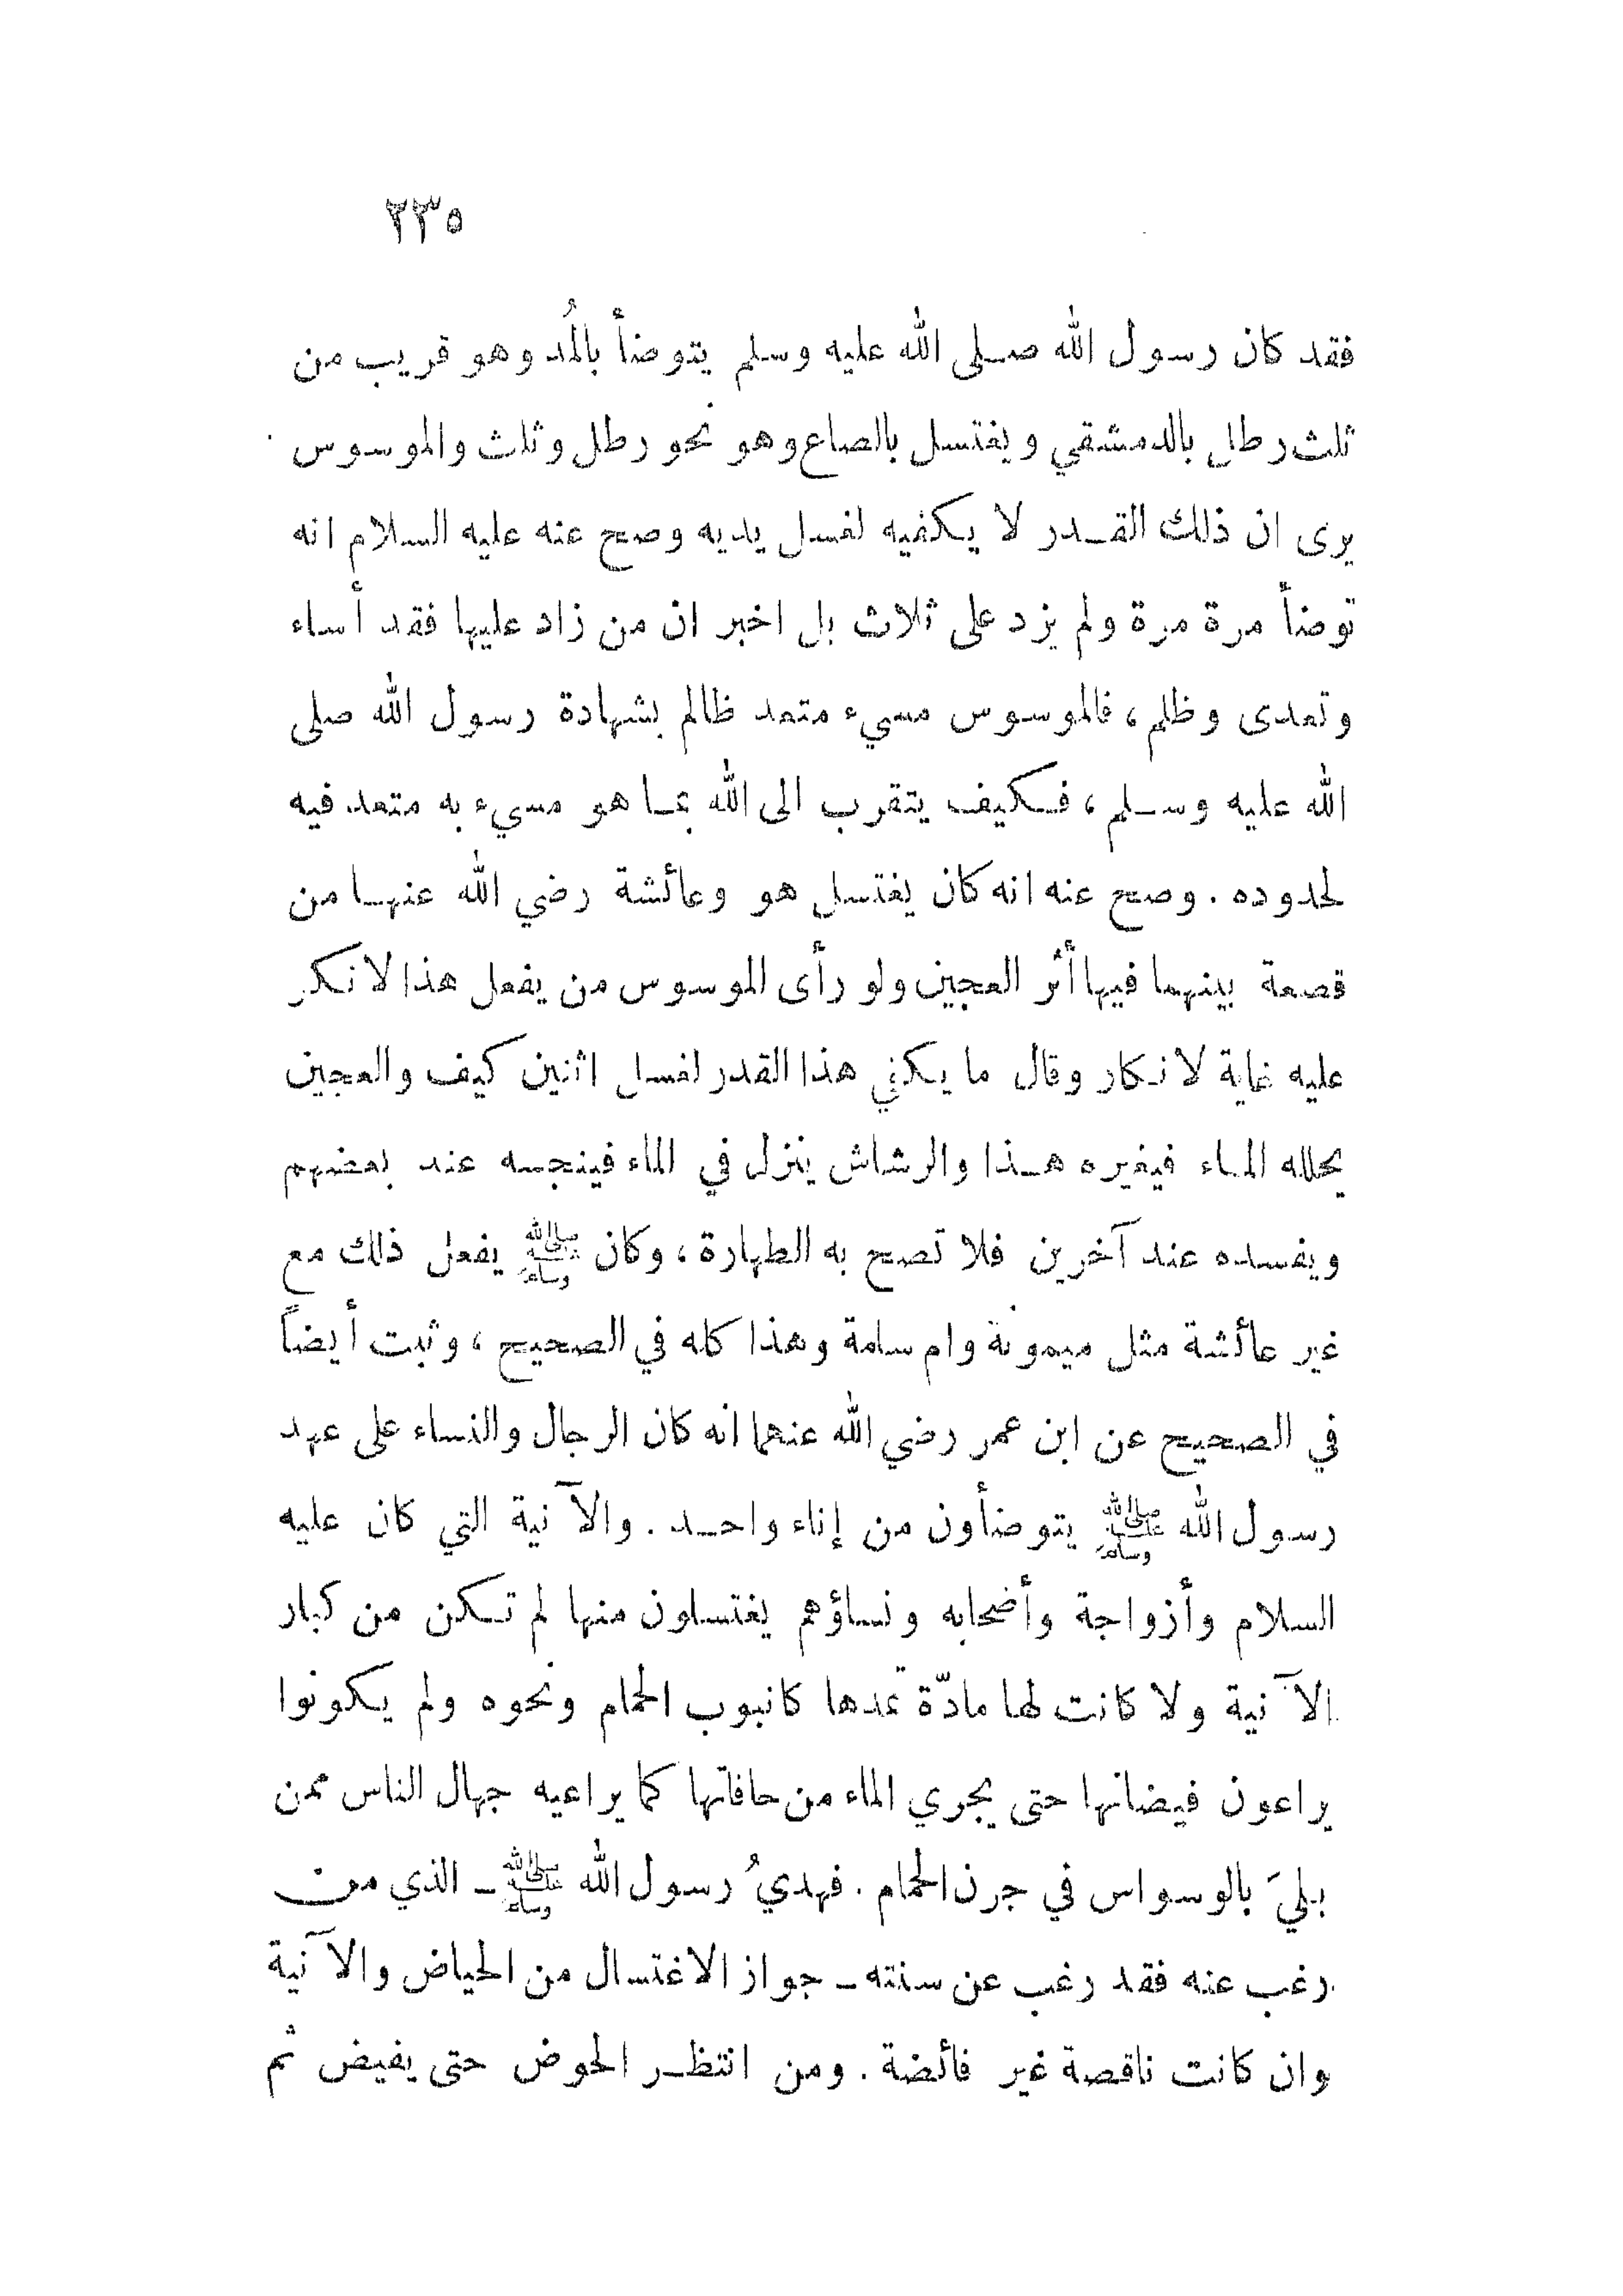 ٢٣٥
فقد كان رسول الله صلى الله عليه وسلم يتوضأ بالمُد وهو قريب من
ثلث رطل بالدمشقي ويغتسل بالصاع وهو نحو رطل وثلث والموسوس
يرى ان ذلك القدر لا يكفيه لغسل يديه وصح عنه عليه السلام انه
توضأ مرة مرة ولم يزد على ثلاث بل اخبر ان من زاد عليها فقد أساء
وتعدى وظلم، فالموسوس مسيء متعد ظالم بشهادة رسول الله صلى
الله عليه وسلم، فكيف يتقرب الى الله بما هو مسيء به متعد فيه
لحدوده. وصح عنه انه كان يغتسل هو وعائشة رضي الله عنها من
قصعة بينهما فيها أثر العجين ولو رأى الموسوس من يفعل هذا لانكر
عليه غاية لانكار وقال ما يكفي هذا القدر لغسل اثنين كيف والعجين
يحلله الماء فيغيره هذا والرشاش ينزل في الماء فينجسه عند بعضهم
ويفسده عند آخرين فلا تصح به الطهارة، وكان ﷺ يفعل ذلك مع
غير عائشة مثل ميمونة وام سلمة وهذا كله في الصحيح، وثبت أيضاً
في الصحيح عن ابن عمر رضي الله عنهما انه كان الرجال والنساء على عهد
رسول الله ﷺ يتوضأون من إناء واحد. والآنية التي كان عليه
السلام وأزواجة وأضحابه ونساؤهم يغتسلون منها لم تكن من كبار
الآنية ولا كانت لها مادّة تمدها كانبوب الحمام ونحوه ولم يكونوا
يراعون فيضانها حتى يجري الماء من حافاتها كما يراعيه جهال الناس ممن
بليَ بالوسواس في جرن الحمام. فهديُ رسول الله ﷺ ـ الذي من
رغب عنه فقد رغب عن سنته ـ جواز الاغتسال من الحياض والآنية
وان كانت ناقصة غير فائضة. ومن انتظر الحوض حتى يفيض ثم